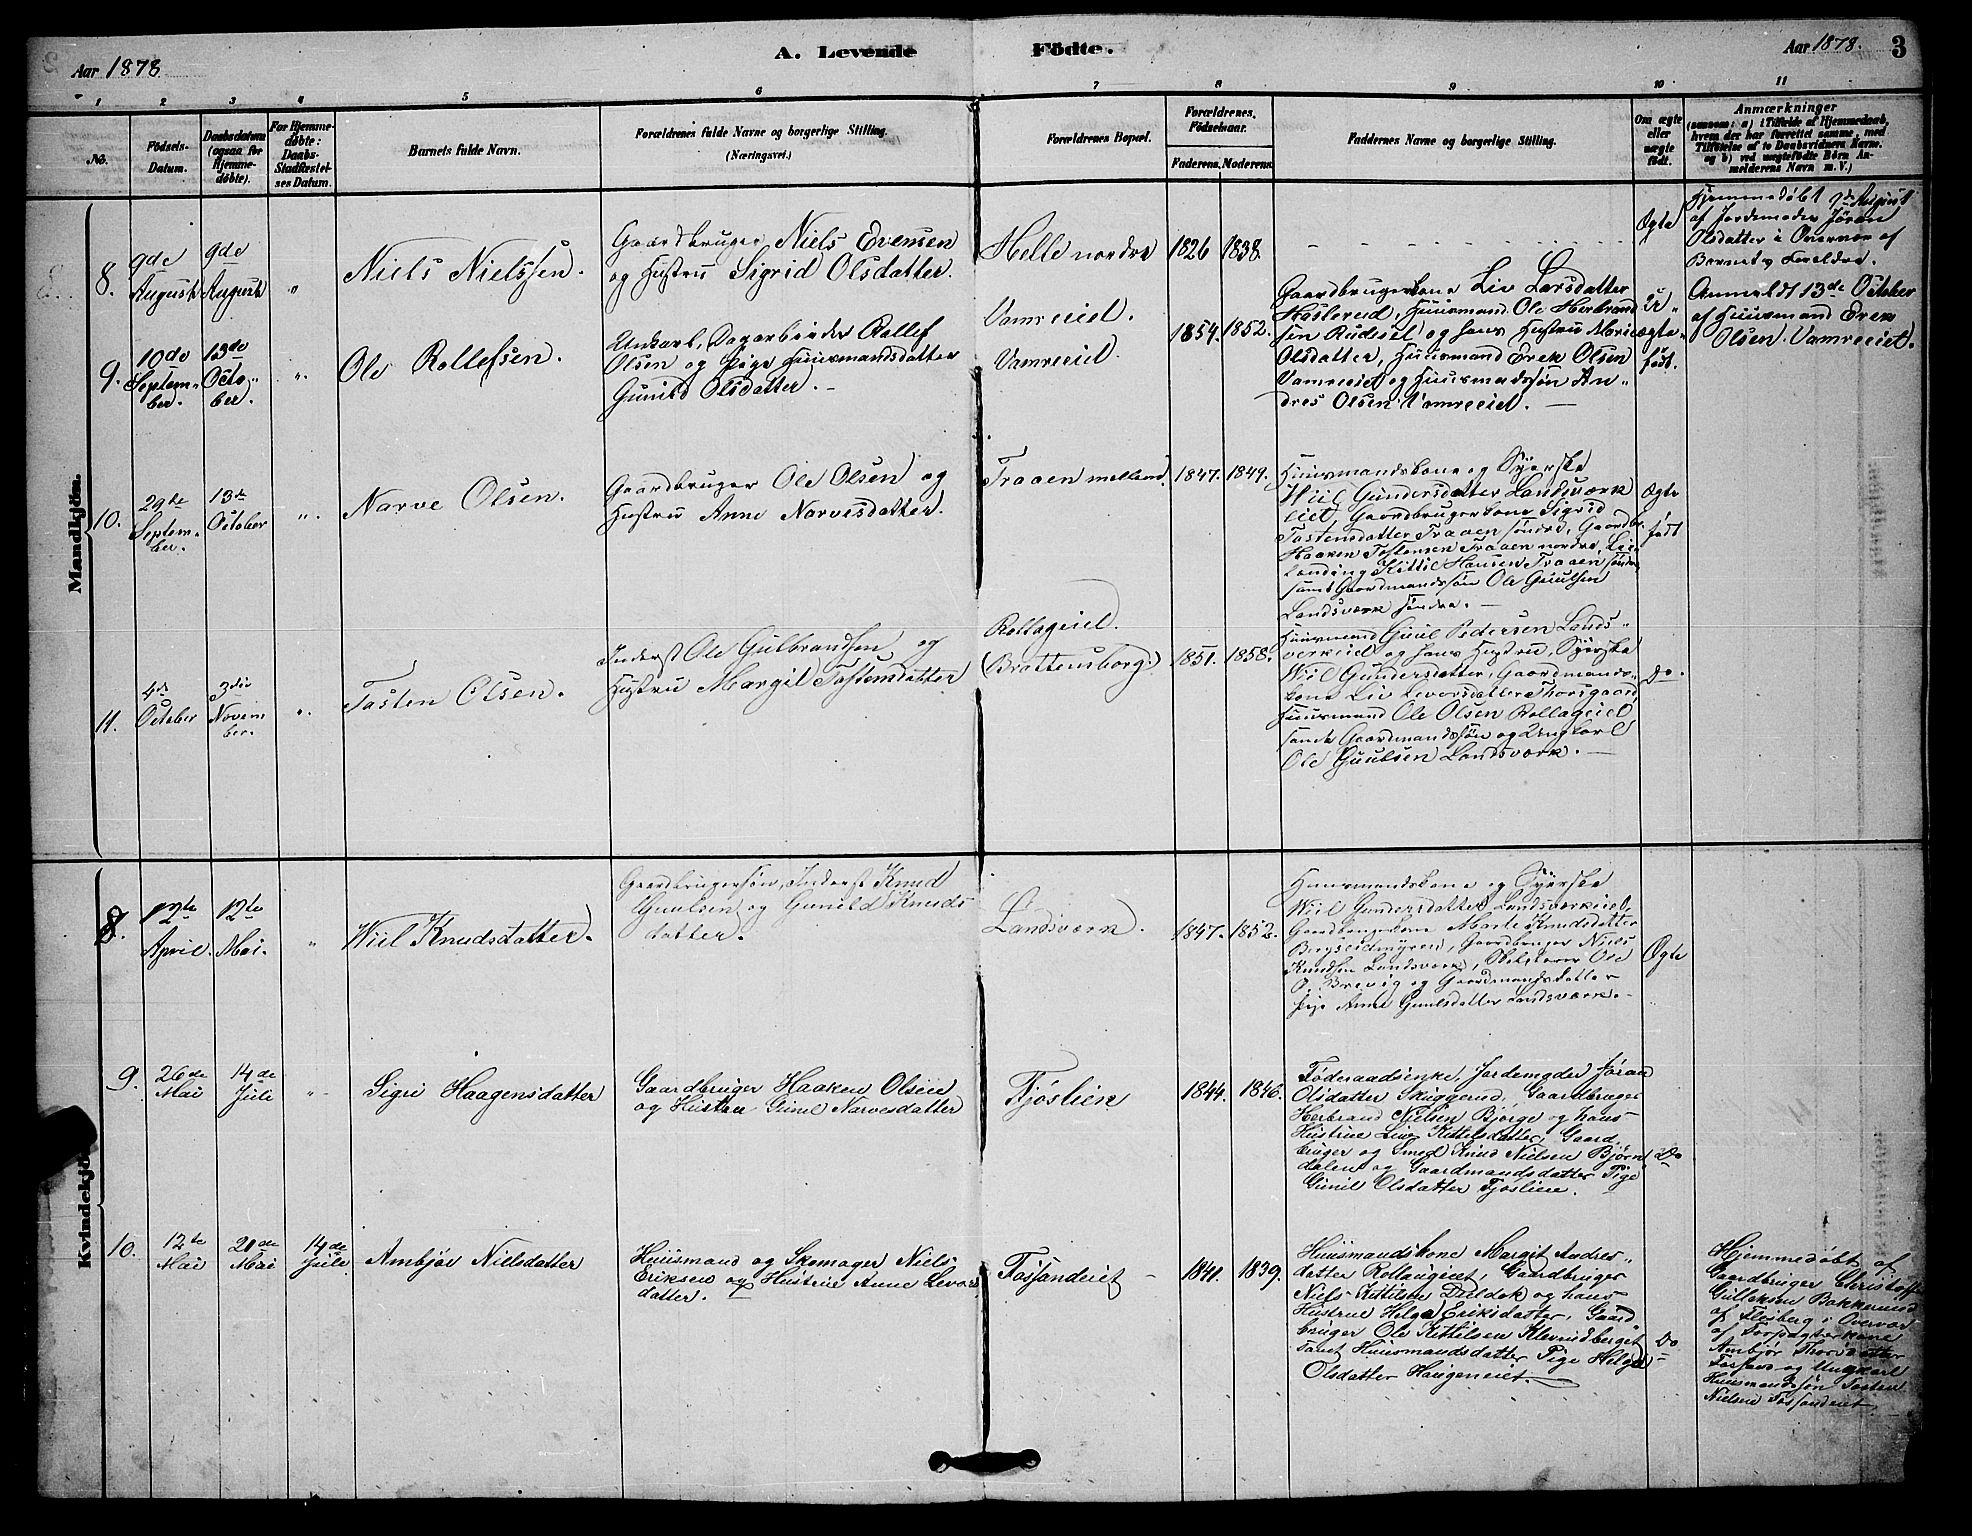 Aar 1878
A. Levende Födte.
Aar 1878.
3
1 2 3 4 5 6 7 8 9 10 11
No.
Födsels-
Datum.
Daabsdatum
(ogsaa for
Hjemme-
döbte).
For Hjemme-
döbte:
Daabs-
Stadfæstel-
ses Datum.
Barnets fulde Navn.
Forældrenes fulde Navne og borgerlige Stilling.
(Næringsvei.)
Forældrenes Bopæl.
Forældrenes
Födselsaar.
Faderens. Moderens.
Faddernes Navne og borgerlige Stilling.
Om ægte
eller
uægte
födt.
Anmærkninger
(saasom: a) i Tilfælde af Hjemmedaab,
hvem der har forrettet samme, med
Tilföielse af to Daabsvidners Navne.
og b) ved uægtefödte Börn An-
melderens Navn m.V.)
Mandkjön.
8.
9de
August
9de
August
"
Niels Nielssen.
Gaardbruger Niels Evensen
og Hustru Sigrid Olsdatter.
Helle nordre
1826
1838.
Ægte
Hjemmedøbt 9de August
af Jordemoder Jøran
Olsdatter i Overvær af
Barnets Forældre.
9.
10de
Septem-
ber.
13de
Octo-
ber.
".
Ole Rollefsen.
Ungkarl, Dagarbeider Rollef
Olsen og Pige Huusmandsdatter
Gunild Olsdatter. —
Vamreeiet.
Vamreeiet.
1854.
1852.
Gaardbrugerkone Liv Larsdatter
Haslereid, Huusmand Ole Herbrand
sen Rudssel og hans Hustru Marie
Olsdatter, Huusmand Erek Olsen
Vamreeiet og Huusmandssøn An-
dres Olsen Vamreeiet. —
U-
ægte-
født.
Anmeldt 13de October
af Huusmand Erek
Olsen Vamreeiet.
10.
29de
Septem-
ber.
13de
October
".
Narve Olsen.
Gaardbruger Ole Olsen og
Hustru Anne Narvesdatter.
Traaen melland
1847.
1849.
Huusmandskone og Syerske
Wiil Gundersdatter Landsværk
eiet, Gaardbrugerkone Sigrid
Tostensdatter Traaen søndre, Gaardbr.
Haaken Tostensen Traaen nordre,
Kittil Hansen Traaen søndre
samt Gaardmandssøn Ole Guulsen
Landsværk søndre. —
Ægte
født
11.
4de
October
3die
Novem
ber.
".
Tosten Olsen.
Inderst Ole Gulbrandsen og
Hustru Margit Tostensdatter
Rollageiet.
(Brattensborg.)
1851.
1858.
Huusmand Guul Pedersen Lands-
verkeiet og hans Hustru, Syerske
Wiil Gundersdatter, Gaardmands-
kone Liv Leversdatter Thorsgaard,
Huusmand Ole Olsen Rollageiet
samt Gaardmandssøn og Ungkarl
Ole Guulsen Landsværk. —
Do.
Kvindekjö
8.
12te
April.
12te
Mai.
"
Wiil Knudsdatter.
Gaardbrugersøn, Inderst Knud
Guulsen og Gunild Knuds
datter.
Landsværk.
1847.
1852.
Huusmandskone og Syerske
Wiil Gundersdatter Landsværkeiet,
Gaardbrugerkone Marte Knudsdatter
Bergseidmyren, Gaardbruger Niels
Knudsen Landsværk, Skolelærer Ole
O. Brevig og Gaardmandsdatter
Pige Anne Guulsdatter Landsværk. -
Ægte
9.
26de
Mai
14de
Juli
"
Sigri Haagensdatter
Gaardbruger Haaken Olsen
og Hustru Gunil Narvesdatter
Fjøslien
1844.
1846.
Føderaadsenke Jordemoder Jøran
Olsdatter Skuggerud, Gaardbruger
Herbrand Nielsen Bjørge og hans
Hustrue Liv Kittelsdatter, Gaard
bruger og Smed Knud Nielsen Bjørn
dalen og Gaardmandsdatter Pige
Gunil Olsdatter Fjøslien.
Do
10.
12te
Mai
20de
Mai
14de
Juli
Ambjør Nielsdatter
Huusmand og Skomager Niels
Eriksen og Hustrue Anne Levors
datter.
Fossandeiet —
1841.
1839.
Huusmandskone Margit Andres-
datter Rollaugeiet, Gaardbruger
Niels Kittilsen og hans
Hustrue Helga Eriksdatter, Gaard
bruger Ole Kittilsen Klevudberget
samt Huusmandsdatter Pige Helga
Olsdatter Haugeneiet.
Do
Hjemmedøbt af
Gaardbruger Christoffer
Gulleksen Bakkerud
af Flesberg i Overvær
af Forpagterkone
Ambjør Thorsdatter
Fossan og Ungkarl
Huusmandssøn Tosten
Nielsen Fossandeiet.